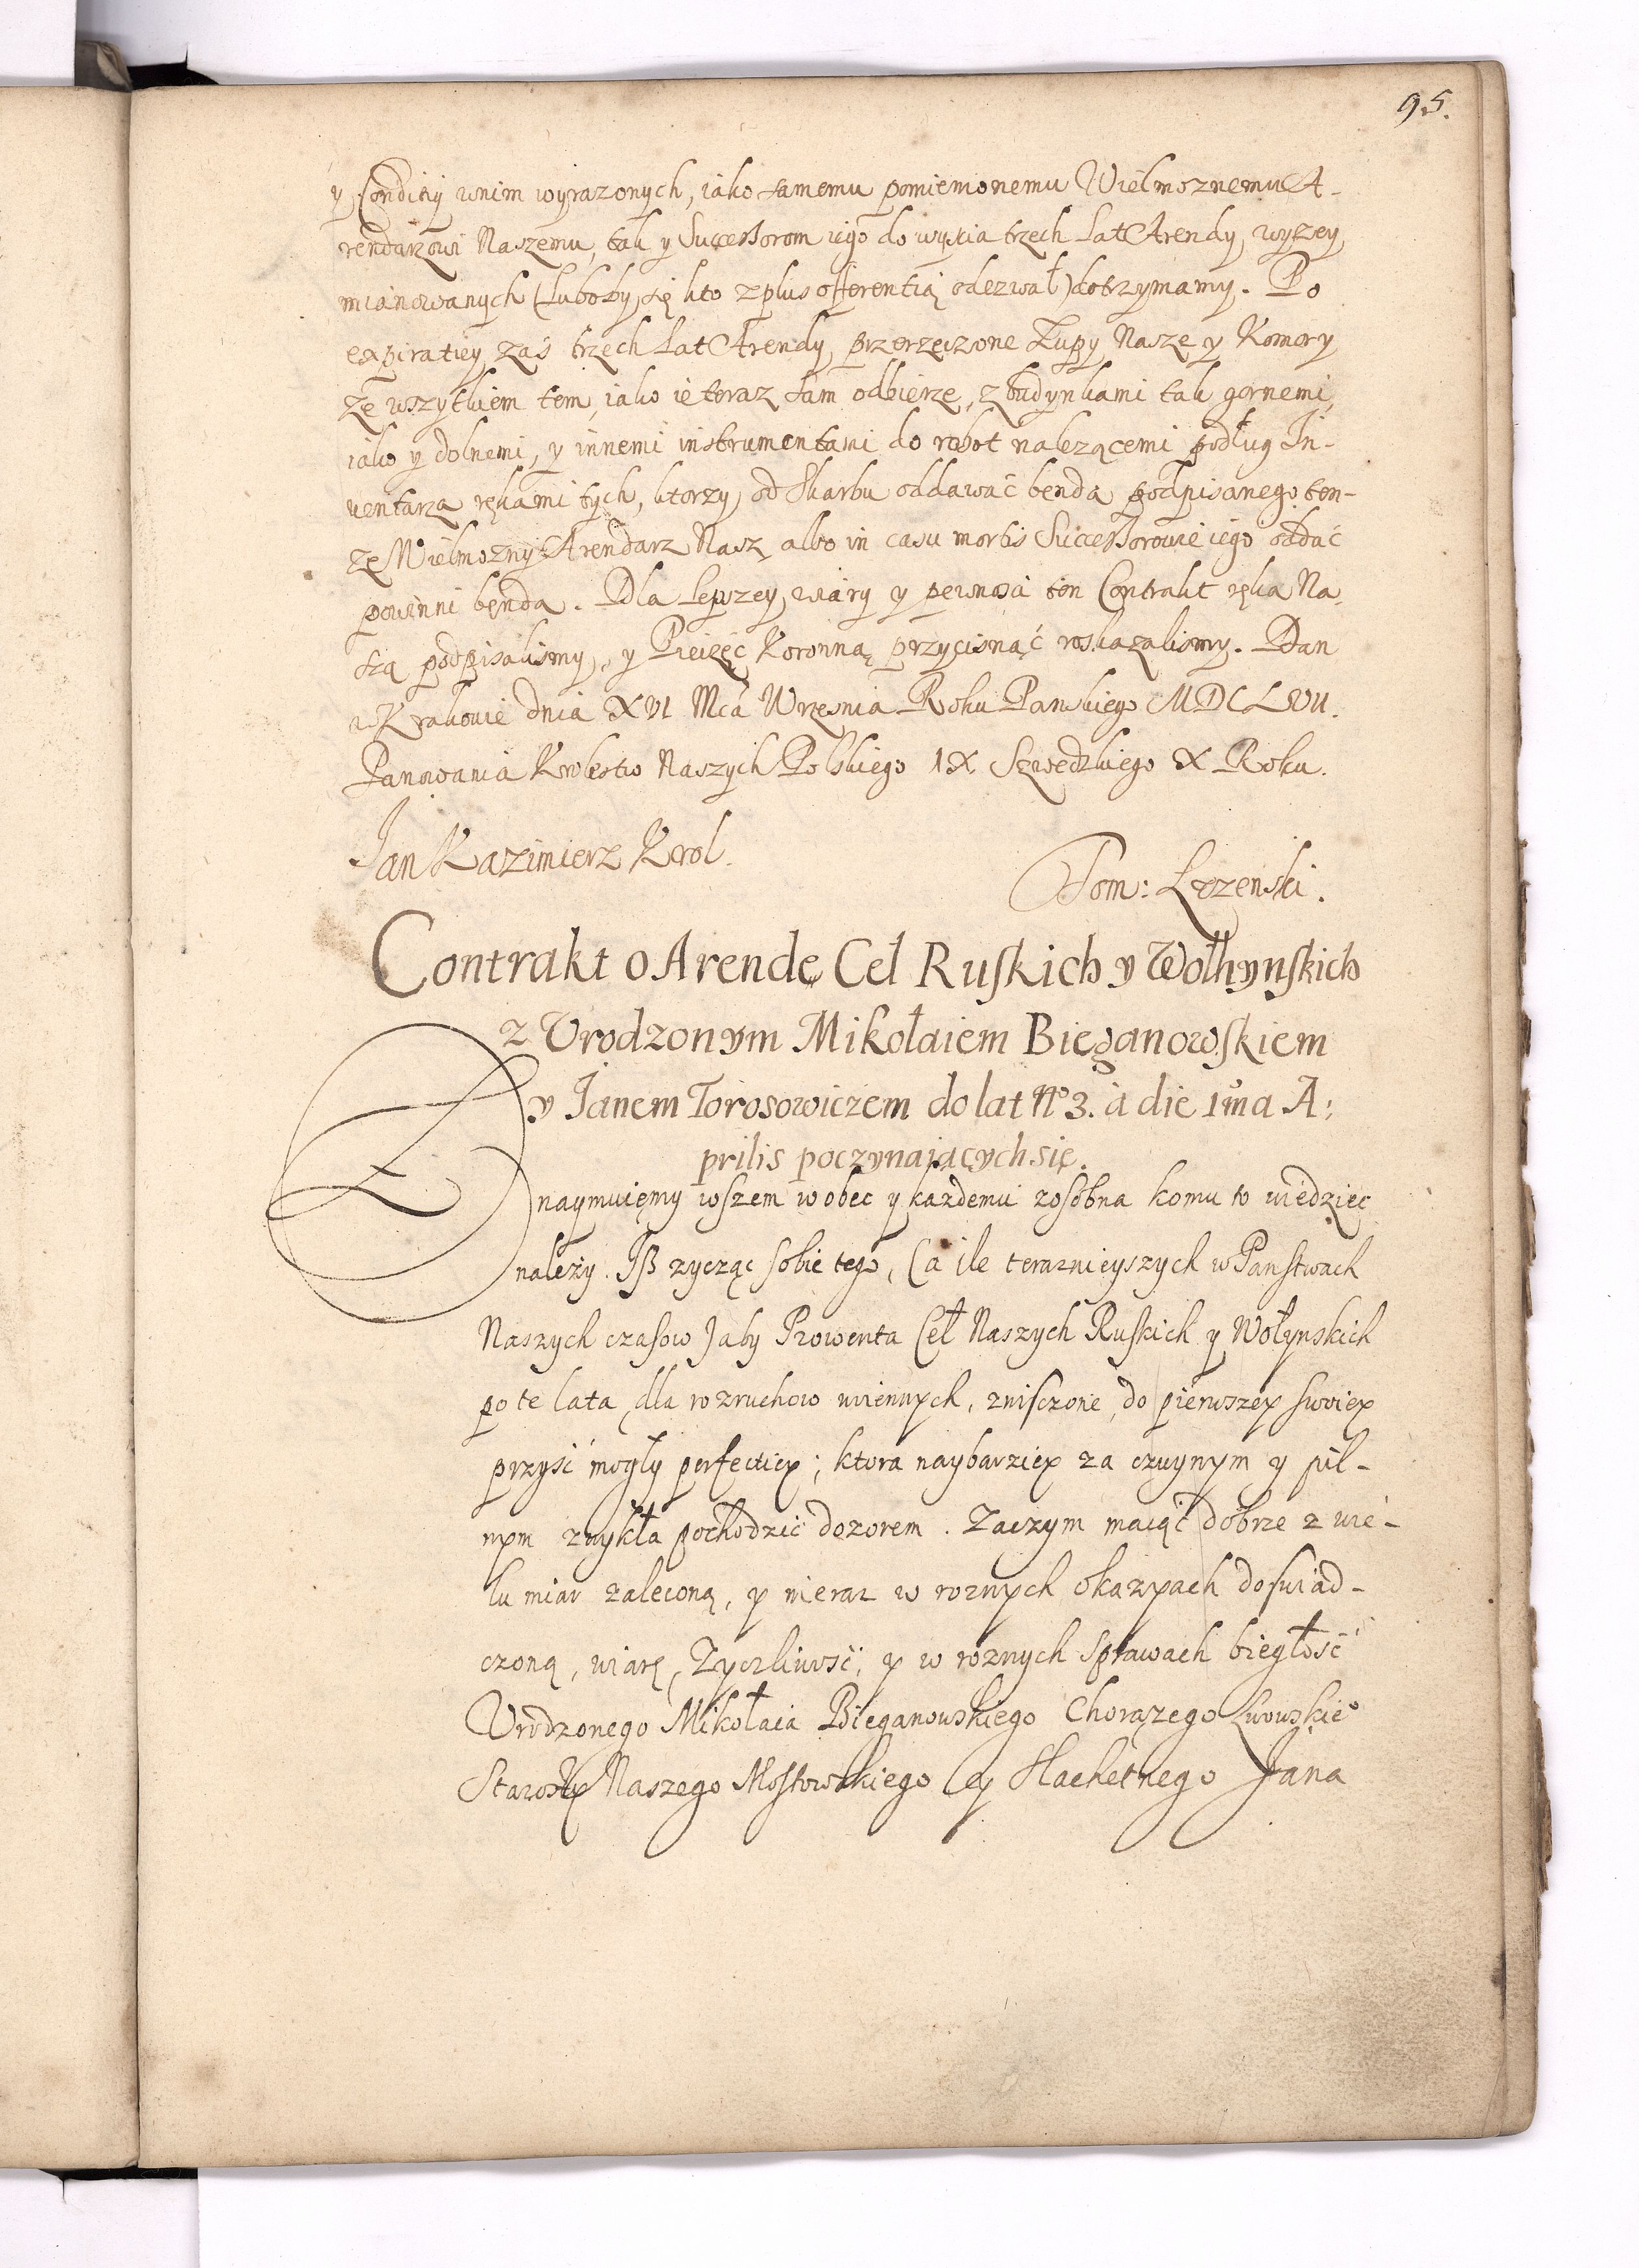 95.
y Condiciy wnim wyrazonych, iako samemu pomiemonemu Wielmoznemu A-
rendarzowi Naszemu, tak y Successorom iego do wyscia trzech Lat Arendy, wyzey
mianowanych (Luboby się kto z plus offerentią odezwał) dotrzymamy. Po
expiratiey zaś trzech Lat Arendy, przerzeczone Zupy Nasze y Komory
ze wszytkiem tem, iako ie teraz sam odbierze, z budynkami tak gornemi,
iako y dolnemi, y innemi instrumentami do robot nalezącemi podług In-
uentarza rękami tych, ktorzy od Skarbu oddawać benda podpisanego ten-
ze Wielmozny Arendarz Nasz albo in casu mortis Successorowie iego oddać
powinni bęnda. Dla Lepszey wiary y pewnosci ten Contrakt ręka Na-
szą podpisalismy, y Pieczęć Koronną przycisnąć roskazalismy. Dan
w Krakowie dnia XVI Mca Wrzesnia Roku Panskiego MDCLVII.
Panowania Krolestw Naszych Polskiego IX Szwedzkiego X Roku.
Jan Kazimierz Krol.
Tom: Lezenski.
Contrakt o Arendę Cel Ruskich y Wołhynskich
z Vrodzonym Mikołaiem Bieganowskiem
y Janem Torosowiczem do lat No 3. à die 1ma A:
prilis poczynaiących się.
Znaymuięmy wszem wobec y każdemu zosobna komu to wiedziec
należy. Iß zycząc sobie tego, (a ile teraznieyszych w Panstwach
Naszych czasow) aby Prowenta Ceł Naszych Ruskich y Wołynskich
po te lata dla rozruchow wiennych, znisczone, do pierwszey swoiey
przysć mogły perfectiey; ktora naybarziey za czuynym y pil-
nym zwykła pochodzić dozorem. Zaczym maiąc dobrze z wie-
lu miar zaleconą, y nieraz w roznych okazyach doswiad-
czoną, wiarę, Zyczliwosć, y w roznych sprawach biegłość
Vrodzonego Mikołaia Bieganowskiego Chorązego Lwowskieo
Starosty Naszego Mostowskiego y Slachetnego Jana